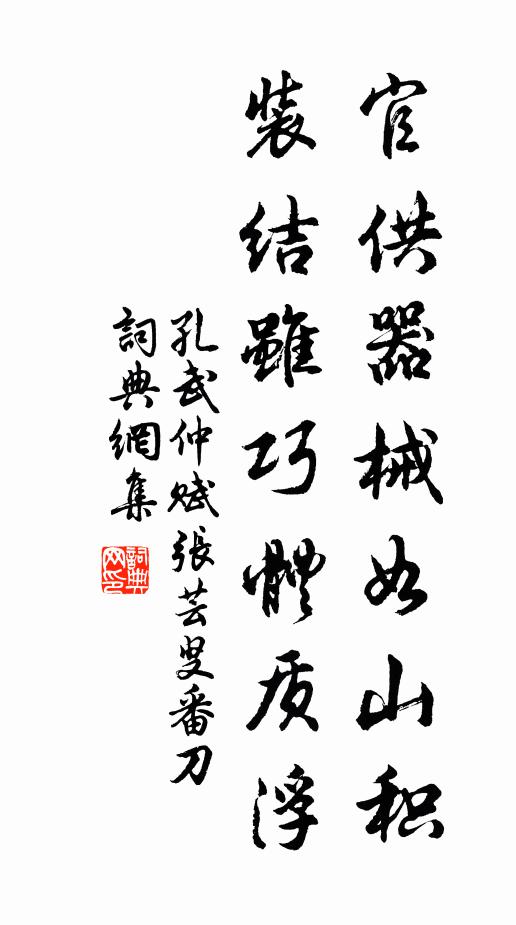 官供器械如山积
裝结雖巧體质浮
孔武仲赋張芸叟番刀
詞典網集
詞典网印